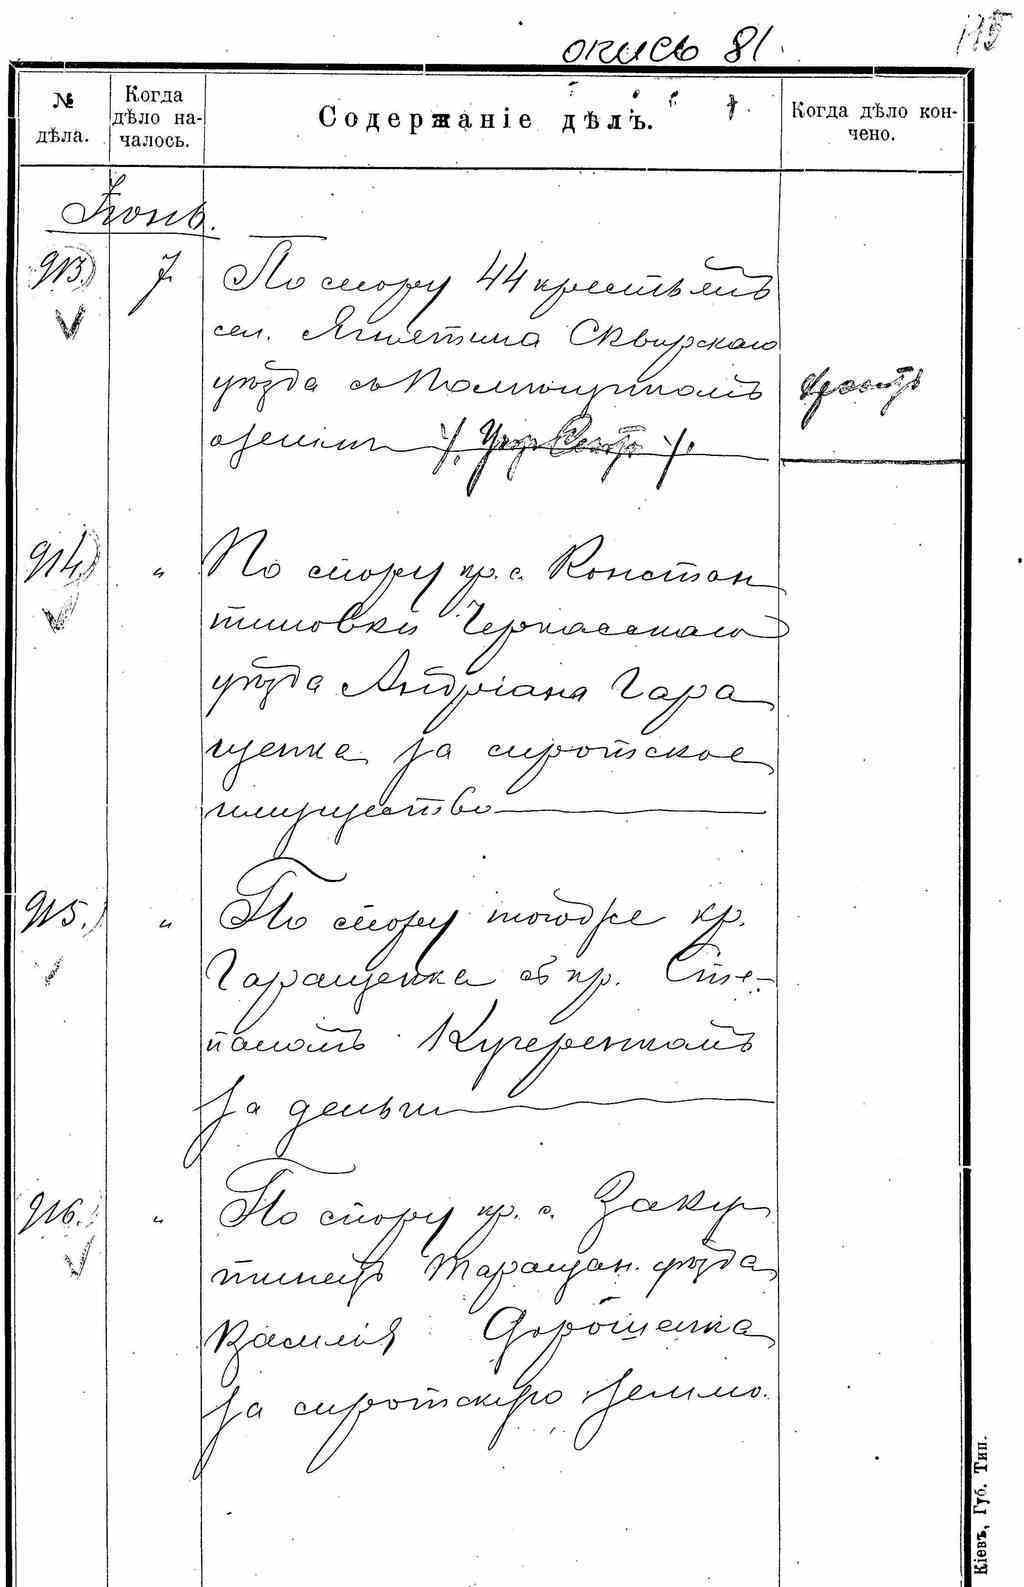 опись 81.
115
№ дѣла.
Когда дѣло началось.
Содержаніе дѣлъ.
Когда дѣло кончено.
Іюнь.
913.) 7. По спору 44 крестьянъ
сел. Ягнятина Сквирскаго
уѣзда съ
о землѣ
914.) " По спору кр. с. Констан
тиновки Черкасскаго
уѣзда Андріана Гара
щенка за сиротское
имущество
915.) " По спору тогоже кр.
Гаращенка съ кр. Сте-
паномъ Кучеренкомъ
за деньги
916.) " По спору кр. с. Заку
тинецъ Таращан. уѣзда
Василія Дорошенка
за сиротскую землю.
Кіевъ, Губ. Тип.